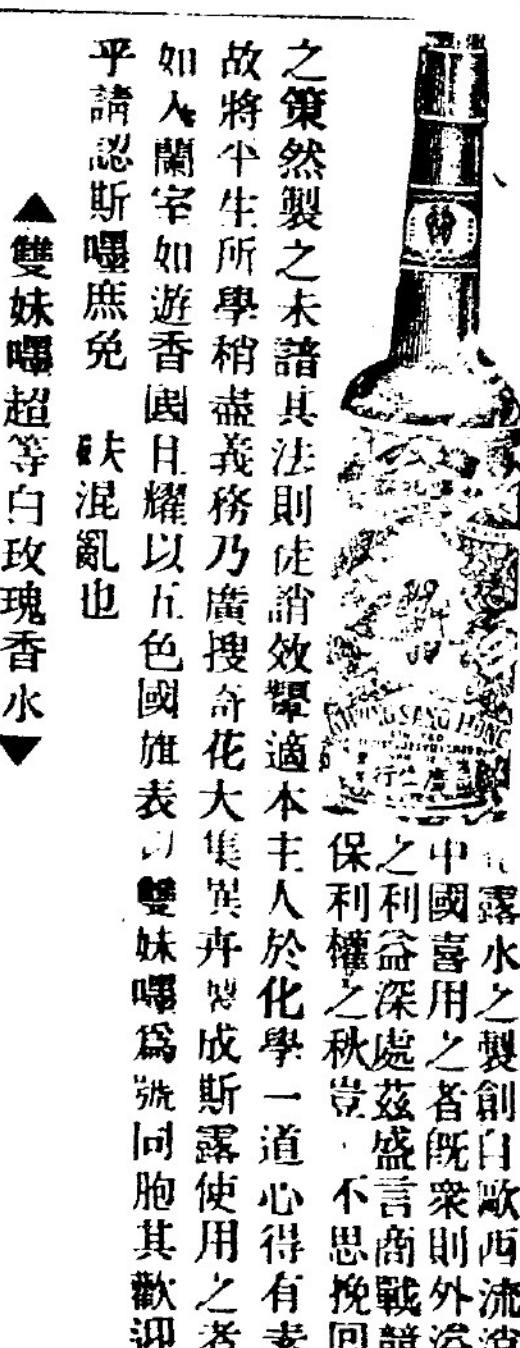 露水之製創自歐西流
中國喜用之者既衆則外溢
之利益深處茲盛言商戰競
保利權之秋豈 不思挽回
之策然製之未諳其法則徒誚效顰適本主人於化學一道心得有素
故將半生所學稍盡義務乃廣搜奇花大集異卉製成斯露使用之者
如入蘭室如遊香國且耀以五色國旗表 雙妹嚜爲號同胞其歡迎
乎請認斯嚜庶免 混亂也
▲雙妹嚜超等白玫瑰香水▼
KWONG SANG HONG
廣生行